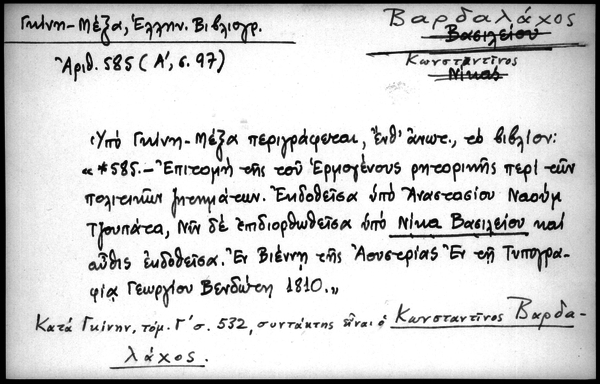 Γκίνη-Μέξα, Ἑλλην. Βιβλιογρ.
Ἀριθ. 585 (Α', σ. 97)
Βαρδαλάχος
Βασιλείου
Κωνσταντῖνος
Νίκας
Ὑπό Γκίνη-Μέξα περιγράφεται, ἔνθ' ἀνωτ., τὸ βιβλίον:
«*585.- Ἐπιτομὴ τῆς τοῦ Ἑρμογένους ρητορικῆς περὶ τῶν
πολιτικῶν ζητημάτων. Ἐκδοθεῖσα ὑπὸ Ἀναστασίου Ναούμ
Τζουπάτα, Νῦν δὲ ἐπιδιορθωθεῖσα ὑπὸ Νίκα Βασιλείου καὶ
αὖθις ἐκδοθεῖσα. Ἐν Βιέννῃ τῆς Ἀουστρίας Ἐν τῇ Τυπογρα-
φίᾳ Γεωργίου Βενδώτη 1810.»
Κατά Γκίνην, τόμ. Γ' σ. 532, συντάκτης εἶναι ὁ Κωνσταντῖνος Βαρδα-
λάχος.